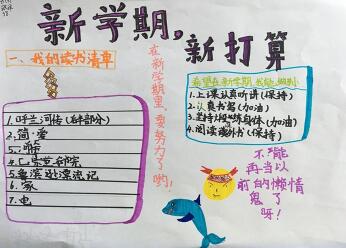 新学期，
新打算
一、我的读书清单
1.呼兰河传(科部分)
2.简·爱
4.七宗
5.鲁滨逊漂流记
6.家
7.
在新学期里，要努力了哟！
希望在新学期,我能做到
1.上课认真听讲(保持)
2.认真书写(加油)
3.坚持锻炼身体(加油)
4.阅读课外书(保持)
不能
再当以
前的懒惰
鬼了
呀！